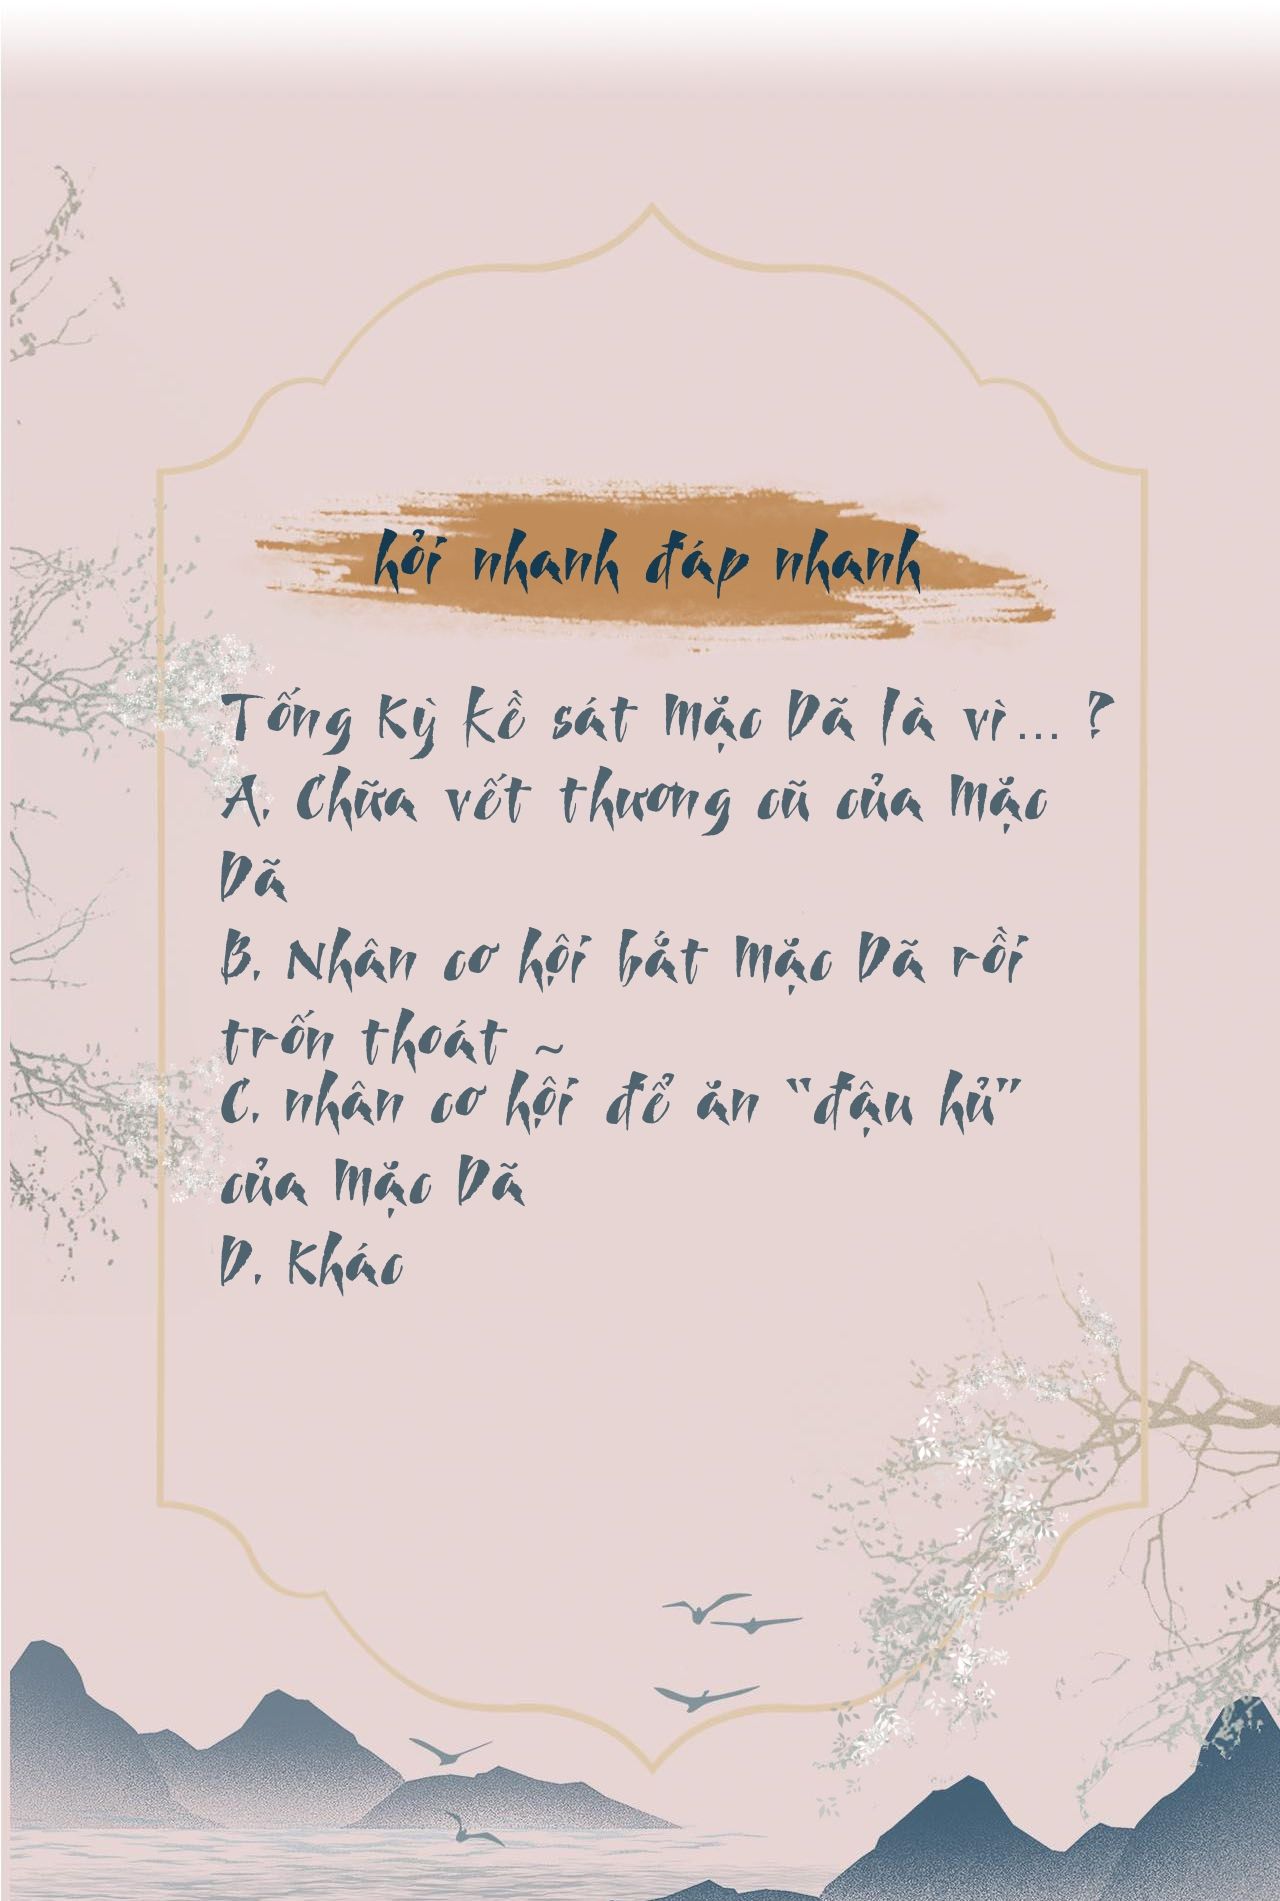 hỏi nhanh đáp nhanh
Tống Kỳ kề sát Mặc Dã là vì... ?
A. Chữa vết thương cũ của Mặc
Dã
B. Nhân cơ hội bắt Mặc Dã rồi
trốn thoát ~
C. nhân cơ hội để ăn "đậu hủ"
của Mặc Dã
D. Khác